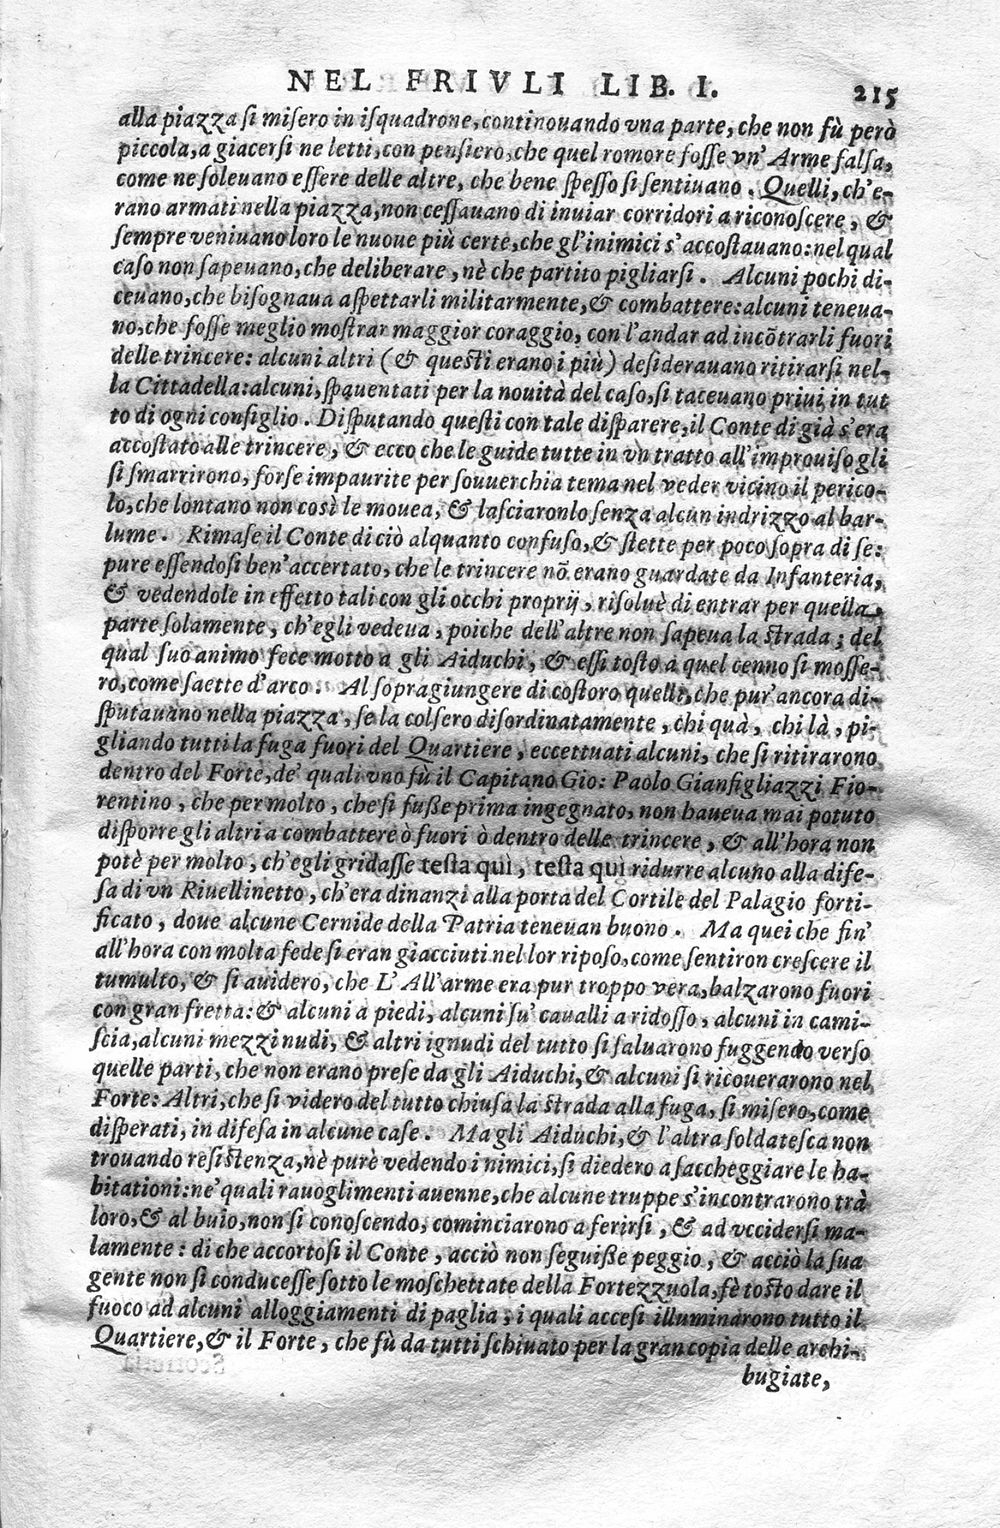 NEL FRIVLI LIB. I. 215
alla piazza ſi miſero in iſquadrone, continouando vna parte, che non fù però
piccola, a giacerſi ne letti, con penſiero, che quel romore foſſe vn' Arme falſa,
come ne ſoleuano eſſere delle altre, che bene ſpeſſo ſi ſentiuano. Quelli, ch'e-
rano armati nella piazza, non ceſſauano di inuiar corridori a riconoſcere, &
ſempre veniuano loro le nuoue più certe, che gl'inimici s'accoſtauano: nel qual
caſo non ſapeuano, che deliberare, nè che partito pigliarſi. Alcuni pochi di-
ceuano, che biſognaua aſpettarli militarmente, & combattere: alcuni teneua-
no, che foſſe meglio moſtrar maggior coraggio, con l'andar ad incõtrarli fuori
delle trincere: alcuni altri (& queſti erano i più) deſiderauano ritirarſi nel-
la Cittadella: alcuni, ſpauentati per la nouità del caſo, ſi taceuano priui in tut
to di ogni conſiglio. Diſputando queſti con tale diſparere, il Conte di già s'era
accoſtato alle trincere, & ecco che le guide tutte in vn tratto all'improuiſo gli
ſi ſmarrirono, forſe impaurite per ſouuerchia tema nel veder vicino il perico-
lo, che lontano non così le mouea, & laſciaronlo ſenza alcun indrizzo al bar-
lume. Rimaſe il Conte di ciò alquanto confuſo, & ſtette per poco ſopra di ſe:
pure eſſendoſi ben'accertato, che le trincere nõ erano guardate da Infanteria,
& vedendole in effetto tali con gli occhi proprij, riſoluè di entrar per quella
parte ſolamente, ch'egli vedeua, poiche dell'altre non ſapeua la ſtrada; del
qual ſuo animo fece motto a gli Aiduchi, & eſſi toſto a quel cenno ſi moſſe-
ro, come ſaette d'arco. Al ſopragiungere di coſtoro quelli, che pur'ancora di-
ſputauano nella piazza, ſe la colſero diſordinatamente, chi quà, chi là, pi-
gliando tutti la fuga fuori del Quartiere, eccettuati alcuni, che ſi ritirarono
dentro del Forte, de' quali vno fù il Capitano Gio: Paolo Gianfigliazzi Fio-
rentino, che per molto, che ſi fuße prima ingegnato, non haueua mai potuto
diſporre gli altri a combattere ò fuori ò dentro delle trincere, & all'hora non
potè per molto, ch'egli gridaſſe teſta quì, teſta quì ridurre alcuno alla dife-
ſa di vn Riuellinetto, ch'era dinanzi alla porta del Cortile del Palagio forti-
ficato, doue alcune Cernide della Patria teneuan buono. Ma quei che fin'
all'hora con molta fede ſi eran giacciuti nel lor ripoſo, come ſentiron creſcere il
tumulto, & ſi auidero, che L'All'arme era pur troppo vera, balzarono fuori
con gran fretta: & alcuni a piedi, alcuni ſu' caualli a ridoſſo, alcuni in cami-
ſcia, alcuni mezzi nudi, & altri ignudi del tutto ſi ſaluarono fuggendo verſo
quelle parti, che non erano preſe da gli Aiduchi, & alcuni ſi ricouerarono nel
Forte: Altri, che ſi videro del tutto chiuſa la ſtrada alla fuga, ſi miſero, come
diſperati, in difeſa in alcune caſe. Ma gli Aiduchi, & l'altra ſoldateſca non
trouando reſiſtenza, nè purè vedendo i nimici, ſi diedero a ſaccheggiare le ha-
bitationi: ne' quali rauoglimenti auenne, che alcune truppe s'incontrarono trà
loro, & al buio, non ſi conoſcendo, cominciarono a ferirſi, & ad vcciderſi ma-
lamente: di che accortoſi il Conte, acciò non ſeguiße peggio, & acciò la ſua
gente non ſi conduceſſe ſotto le moſchettate della Fortezzuola, fè toſto dare il
fuoco ad alcuni alloggiamenti di paglia; i quali acceſi illuminarono tutto il
Quartiere, & il Forte, che fù da tutti ſchiuato per la gran copia delle archi-
bugiate,